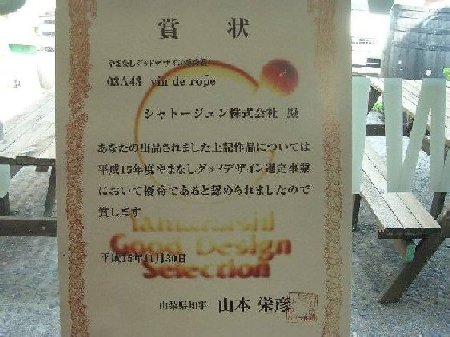 賞状
やまなしグッドデザイン
03A43 vin de rope
シャトージュン株式会社 殿
あなたの出品されました上記作品については
平成15年度やまなしグッドデザイン選定事業
において優秀であると認められましたので
賞します
Yamanashi
Good Design
Selection
平成15年11月30日
山梨県知事 山本栄彦